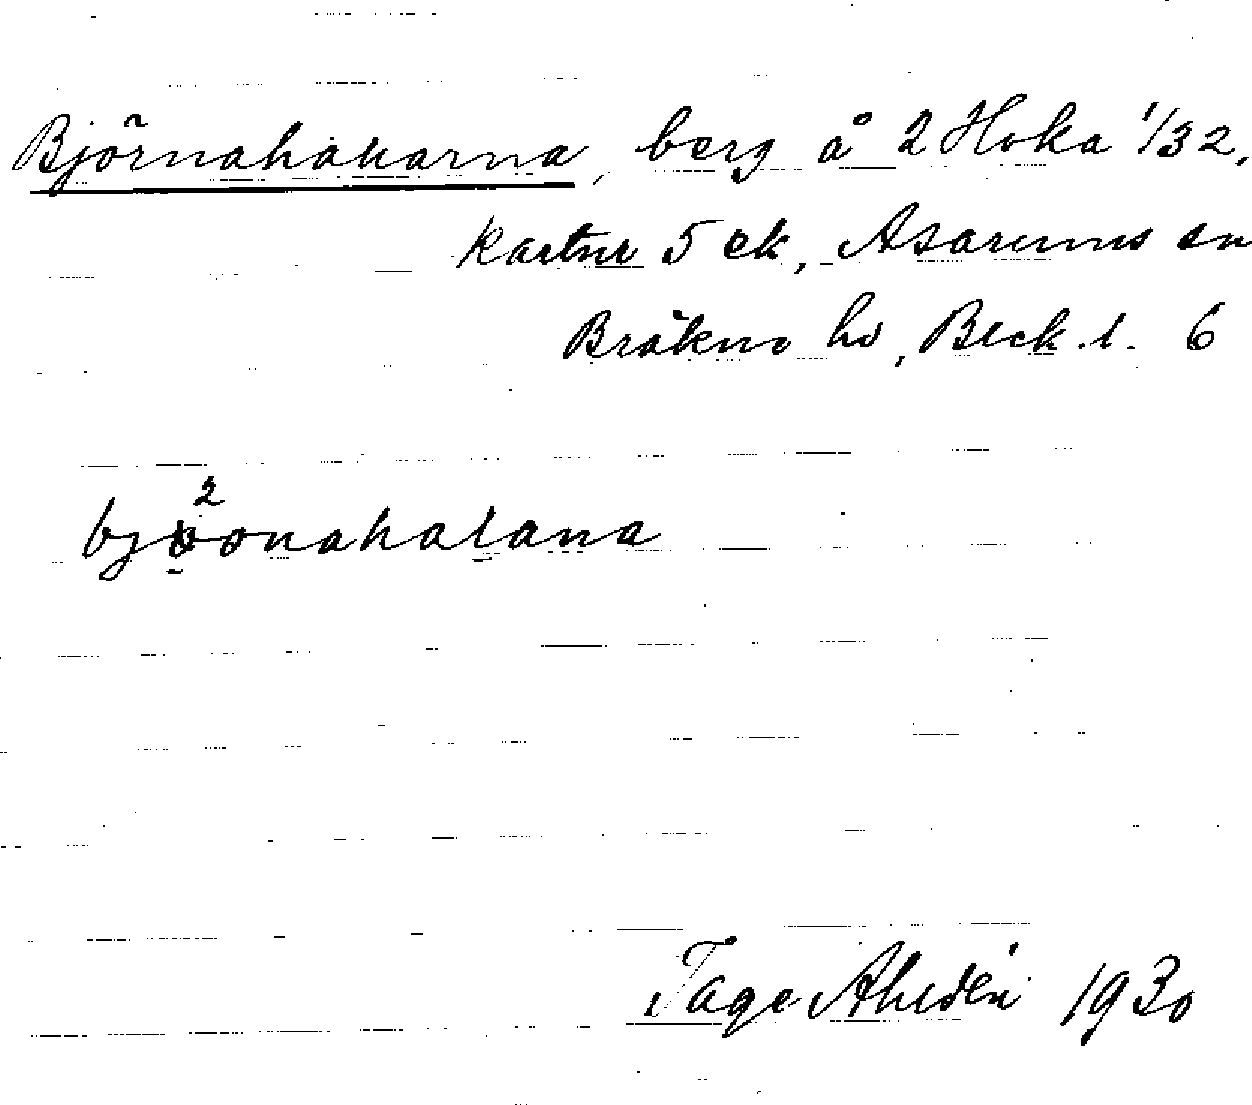 Björnahakarna, berg å 2 Hoka 1/32,
kartnr 5 ek, Asarums sn
Bräkne hd, Blek. l. 6
Tage Ahldén 1930